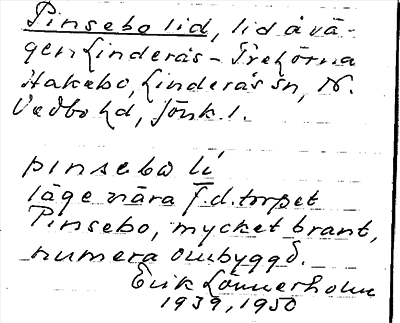 Pinsebo lid, lid å vä-
gen Linderås - Trehörna
Hakebo, Linderås sn, N.
Vedbo hd, Jönk. l.
pinsebω lí
läge nära f.d. torpet
Pinsebo, mycket brant,
numera ombyggd.
Erik Lönnerholm
1939, 1950